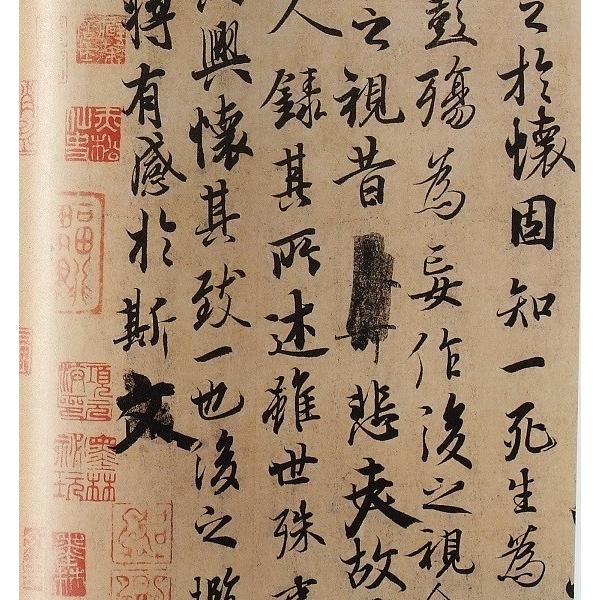 之於懷固知一死生為
彭殤為妄作後之視今
之視昔悲夫故
人錄其所述雖世殊事
興懷其致一也後之攬
將有感於斯文
赤松仙史
墨林祕玩